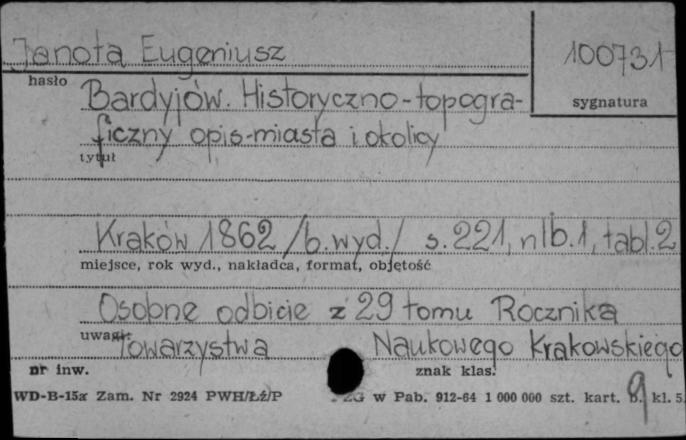 Janota Eugeniusz
100731
hasło
sygnatura
Bardyjów. Historyczno-topogra-
ficzny opis-miasta i okolicy
tytuł
Kraków 1862 /b.wyd./ s.221, nlb.1, tabl.2
miejsce, rok wyd., nakładca, format, objętość
Osobne odbicie z 29 tomu Rocznika
uwagi:
Towarzystwa Naukowego Krakowskiego
nr inw.
znak klas.
WD-B-15a Zam. Nr 2924 PWH/Łź/P w Pab. 912-64 1 000 000 szt. kart. kl. 5
g